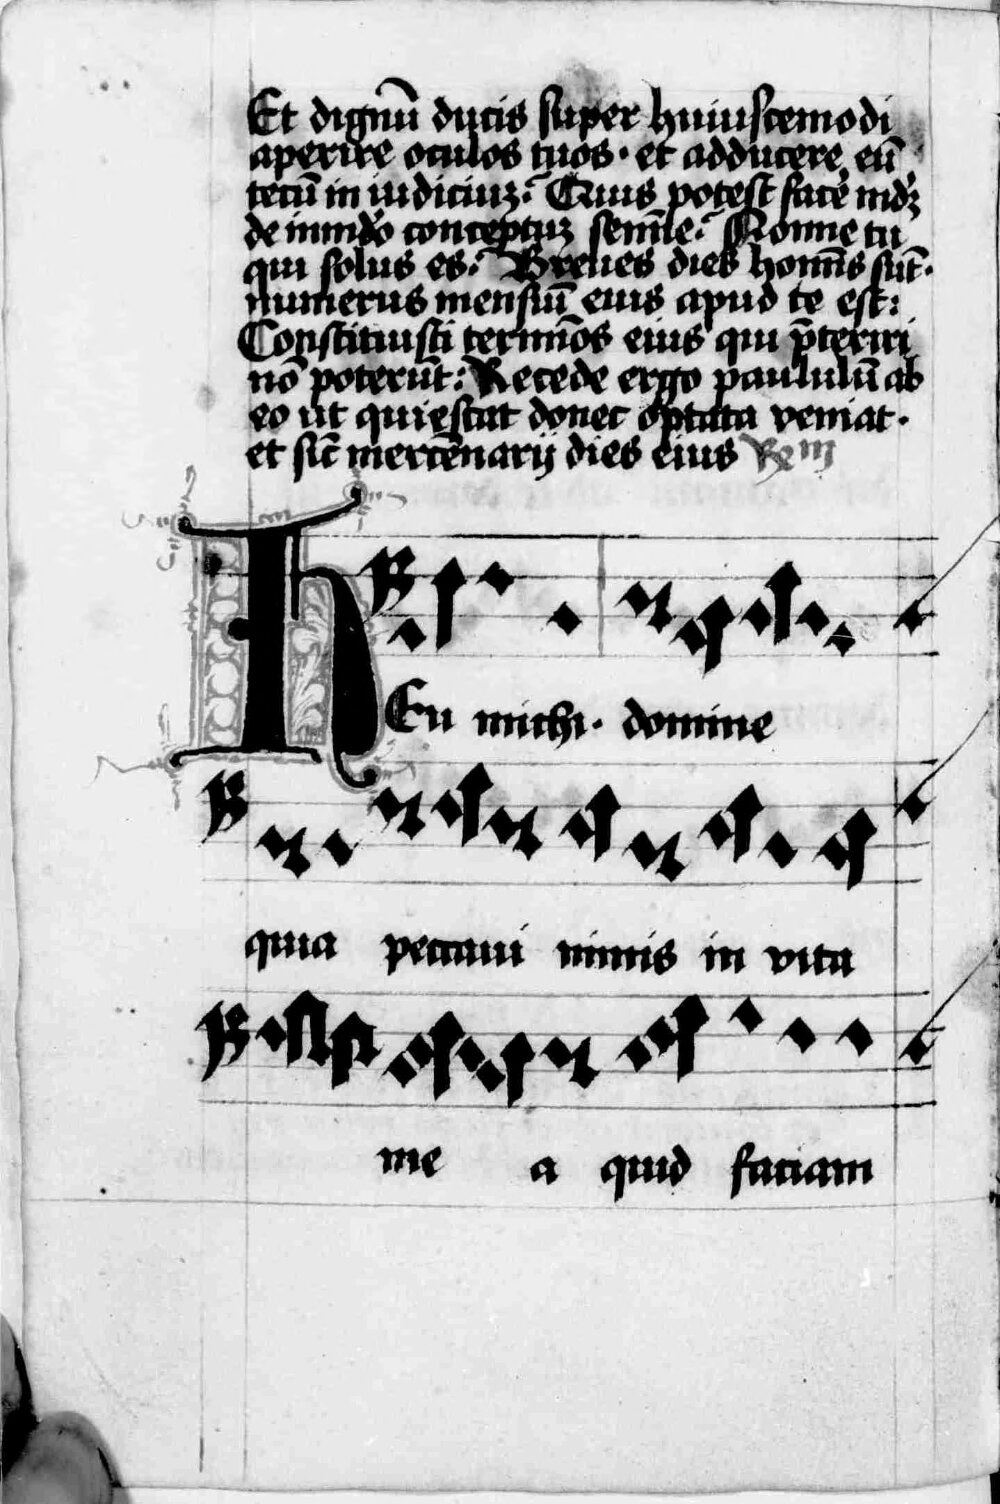 Et dignũ ducis super huiuscemodi
aperire oculos tuos · et adducere eũ
tecũ in iudiciuz? Quis potest face mdz
de inmdo conceptuz semĩe? Nonne tu
qui solus es? Breues dies homĩs sũt ·
numerus mensiuũ eius apud te est:
Constituisti termĩos eius qui p̃teriri
nõ poterũt: Recede ergo paululũ ab
eo ut quiescat donec optata veniat ·
et sic̃ mercẽnarij dies eius
HEu michi · domine
quia peccaui nimis in vita
me a quid faciam